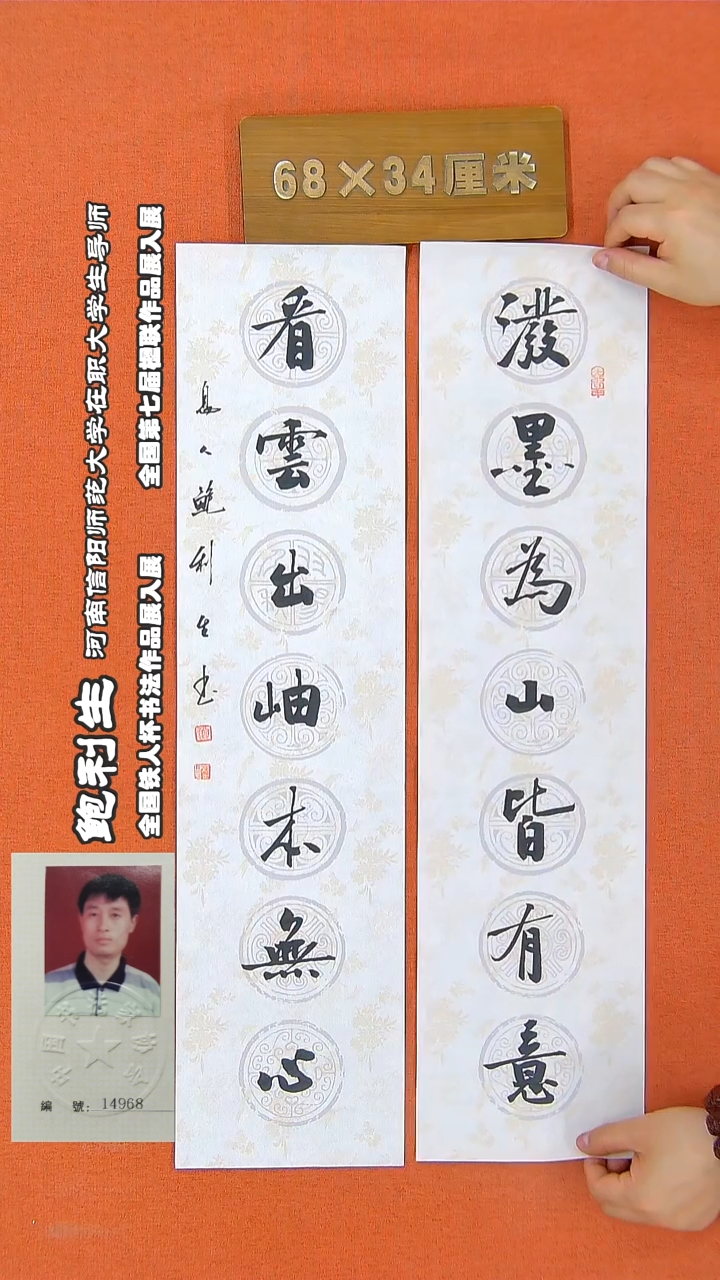 68×34厘米
潑墨為山皆有意
看雲出岫本無心
息人鲍利生书
鲍利生
河南信阳师范大学在职大学生导师
全国铁人杯书法作品展入展
全国第七届楹联作品展入展
編 號: 14968